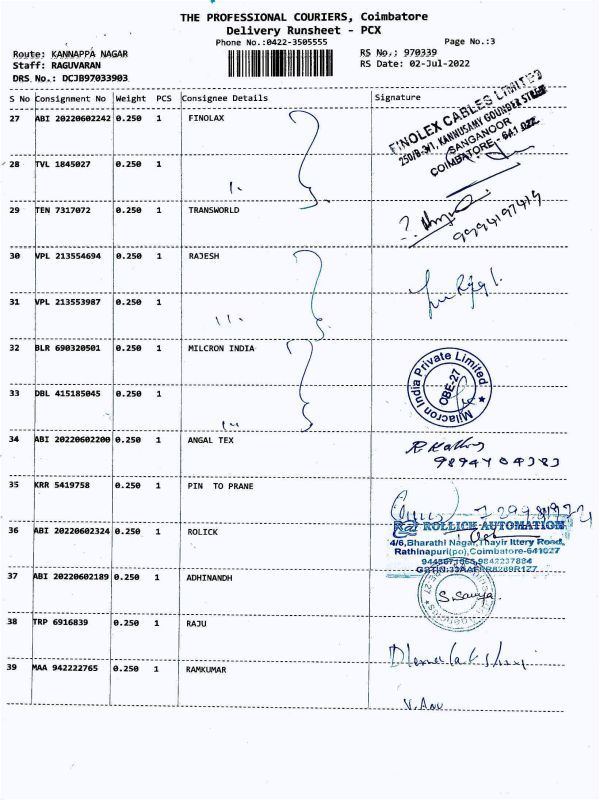 THE PROFESSIONAL COURIERS, Coimbatore
Delivery Runsheet - PCX
Phone No.:0422-3505555
Page No.:3
Route: KANNAPPA NAGAR
RS No.: 970339
Staff: RAGUVARAN
RS Date: 02-Jul-2022
DRS No.: DCJB97033903
S No Consignment No Weight PCS Consignee Details Signature
27 ABI 20220602242 0.250 1 FINOLAX
FINOLEX CABLES LIMITED
250/B-3/1, KANNUSAMY GOUNDER STREET
SANGANOOR
COIMBATORE - 641 022.
28 TVL 1845027 0.250 1
29 TEN 7317072 0.250 1 TRANSWORLD
9994197419
30 VPL 213554694 0.250 1 RAJESH
31 VPL 213553987 0.250 1
32 BLR 690320501 0.250 1 MILCRON INDIA
Milacron India Private Limited
OBE-27
33 DBL 415185045 0.250 1
34 ABI 20220602200 0.250 1 ANGAL TEX
35 KRR 5419758 0.250 1 PIN TO PRANE
36 ABI 20220602324 0.250 1 ROLICK
ROLLICK AUTOMATION
4/6, Bharathi Nagar, Thayir Ittery Road,
Rathinapuri(po), Coimbatore-641027
37 ABI 20220602189 0.250 1 ADHINANDH
S. Sanya
38 TRP 6916839 0.250 1 RAJU
39 MAA 942222765 0.250 1 RAMKUMAR